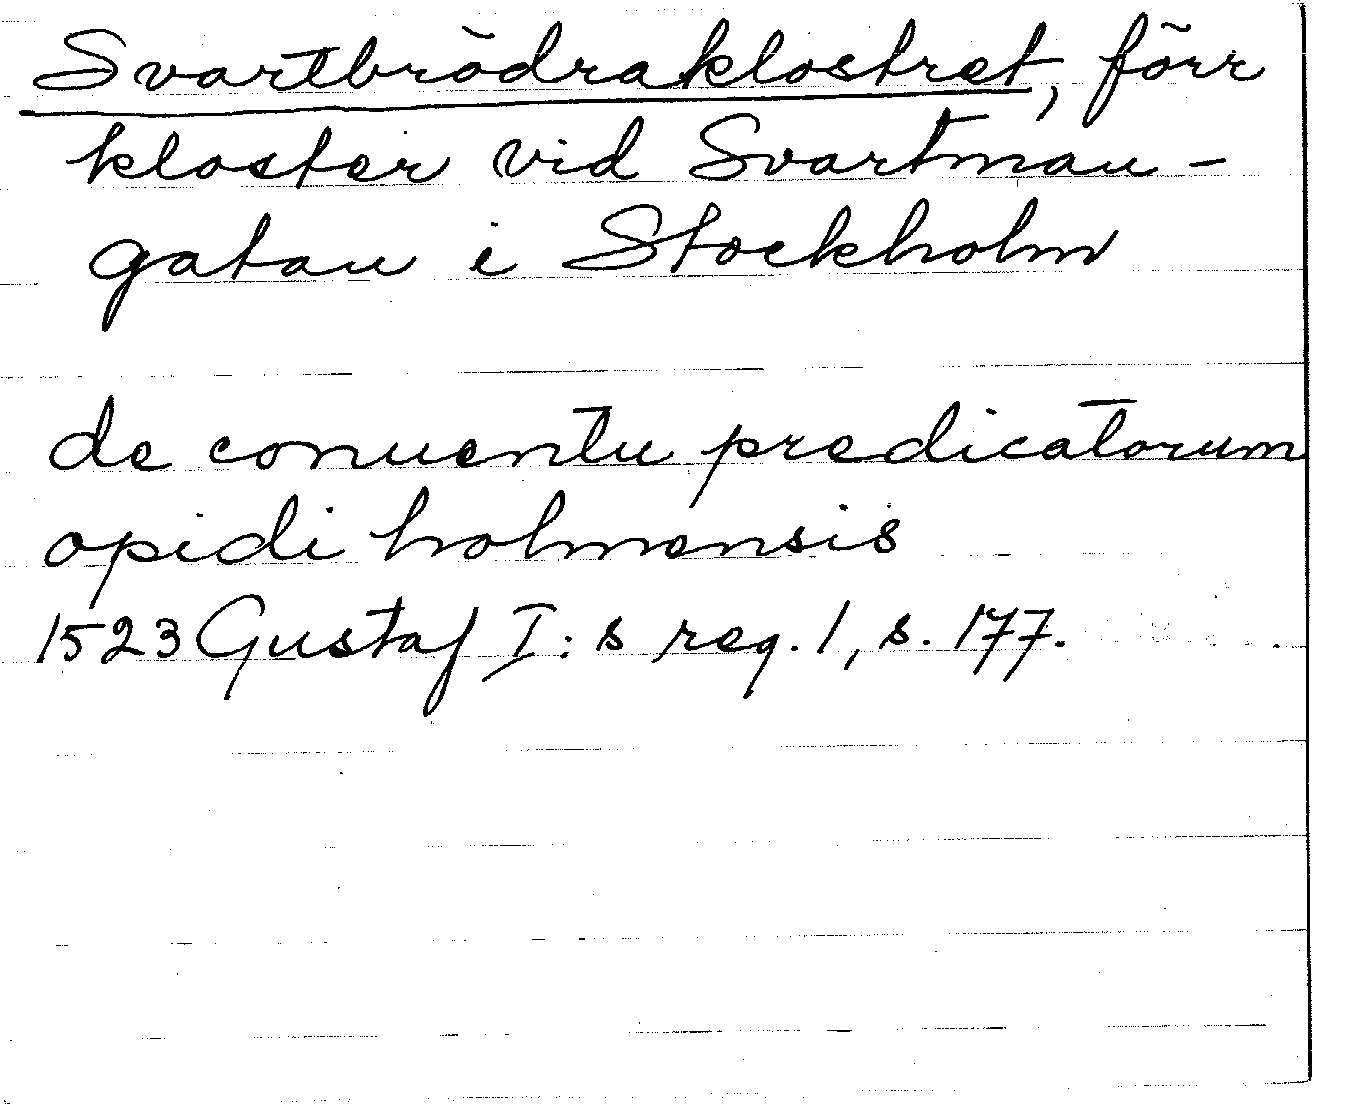 Svartbrödraklostret, förr
kloster vid Svartman-
gatan i Stockholm
de conuentu predicatorum
opidi holmensis
1523 Gustaf I:s reg. 1, s. 177.